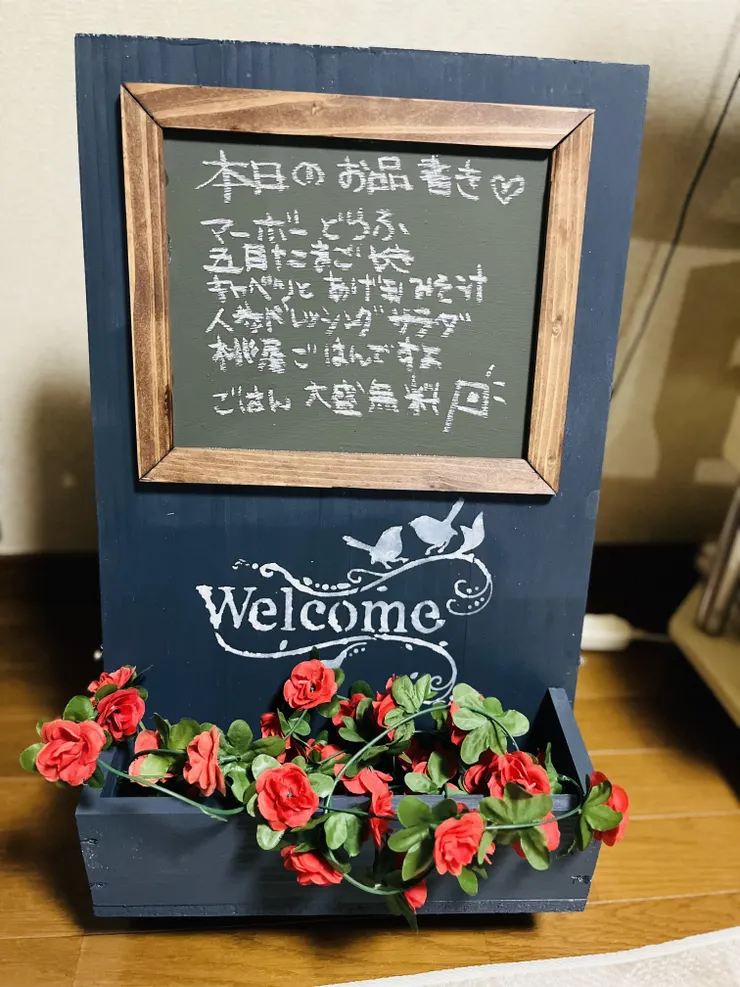 本日のお品書き♡
マーボーどうふ
五目たまご焼き
キャベツとあげ玉みそ汁
人参ドレッシングサラダ
桃屋ごはんですよ
ごはん 大盛無料
Welcome